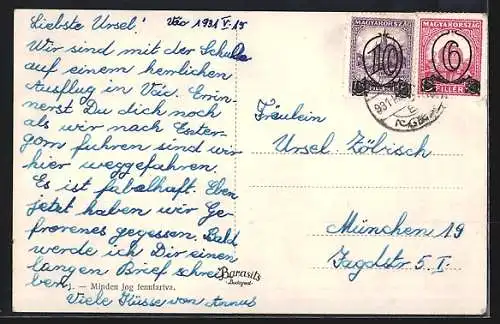 Liebste Ursel! Vác 1931 V. 15
Wir sind mit der Schule
auf einem herrlichen
Ausflug in Vác. Erin-
nerst Du dich noch
als wir nach Eszter-
gom fuhren sind wir
hier weggefahren.
Es ist fabelhaft. Eben
jetzt haben wir Ge-
frorenes gegessen. Bald
werde ich Dir einen
langen Brief schrei-
ben.
Viele Küsse von Annus
Minden jog fenntartva.
Barasits
Budapest
MAGYARORSZÁG
10
MAGYARORSZÁG
6
FILLÉR
931
Fräulein
Ursel Zölisch
München 19
Jagdstr 5. I.